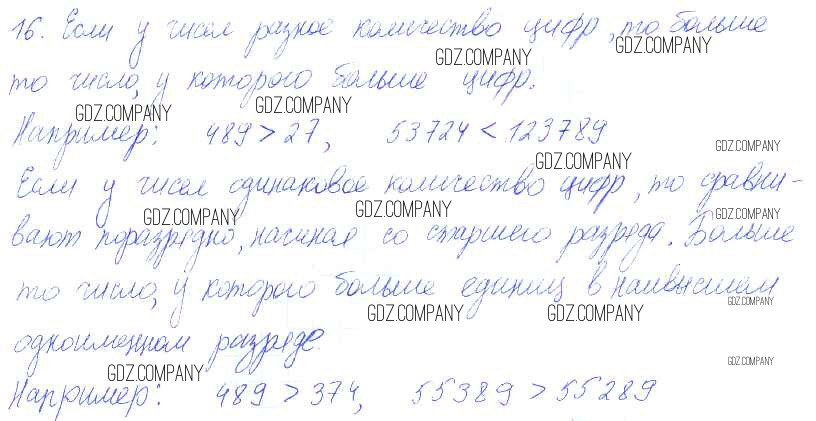 16. Если у чисел разное количество цифр, то больше
то число, у которого больше цифр.
Например: 489 > 27, 53724 < 123789
Если у чисел одинаковое количество цифр, то сравни-
вают поразрядно, начиная со старшего разряда. Больше
то число, у которого больше единиц в наивысшем
одноименном разряде.
Например: 489 > 374, 55389 > 55289
GDZ.COMPANY
GDZ.COMPANY
GDZ.COMPANY
GDZ.COMPANY
GDZ.COMPANY
GDZ.COMPANY
GDZ.COMPANY
GDZ.COMPANY
GDZ.COMPANY
GDZ.COMPANY
GDZ.COMPANY
GDZ.COMPANY
GDZ.COMPANY
GDZ.COMPANY